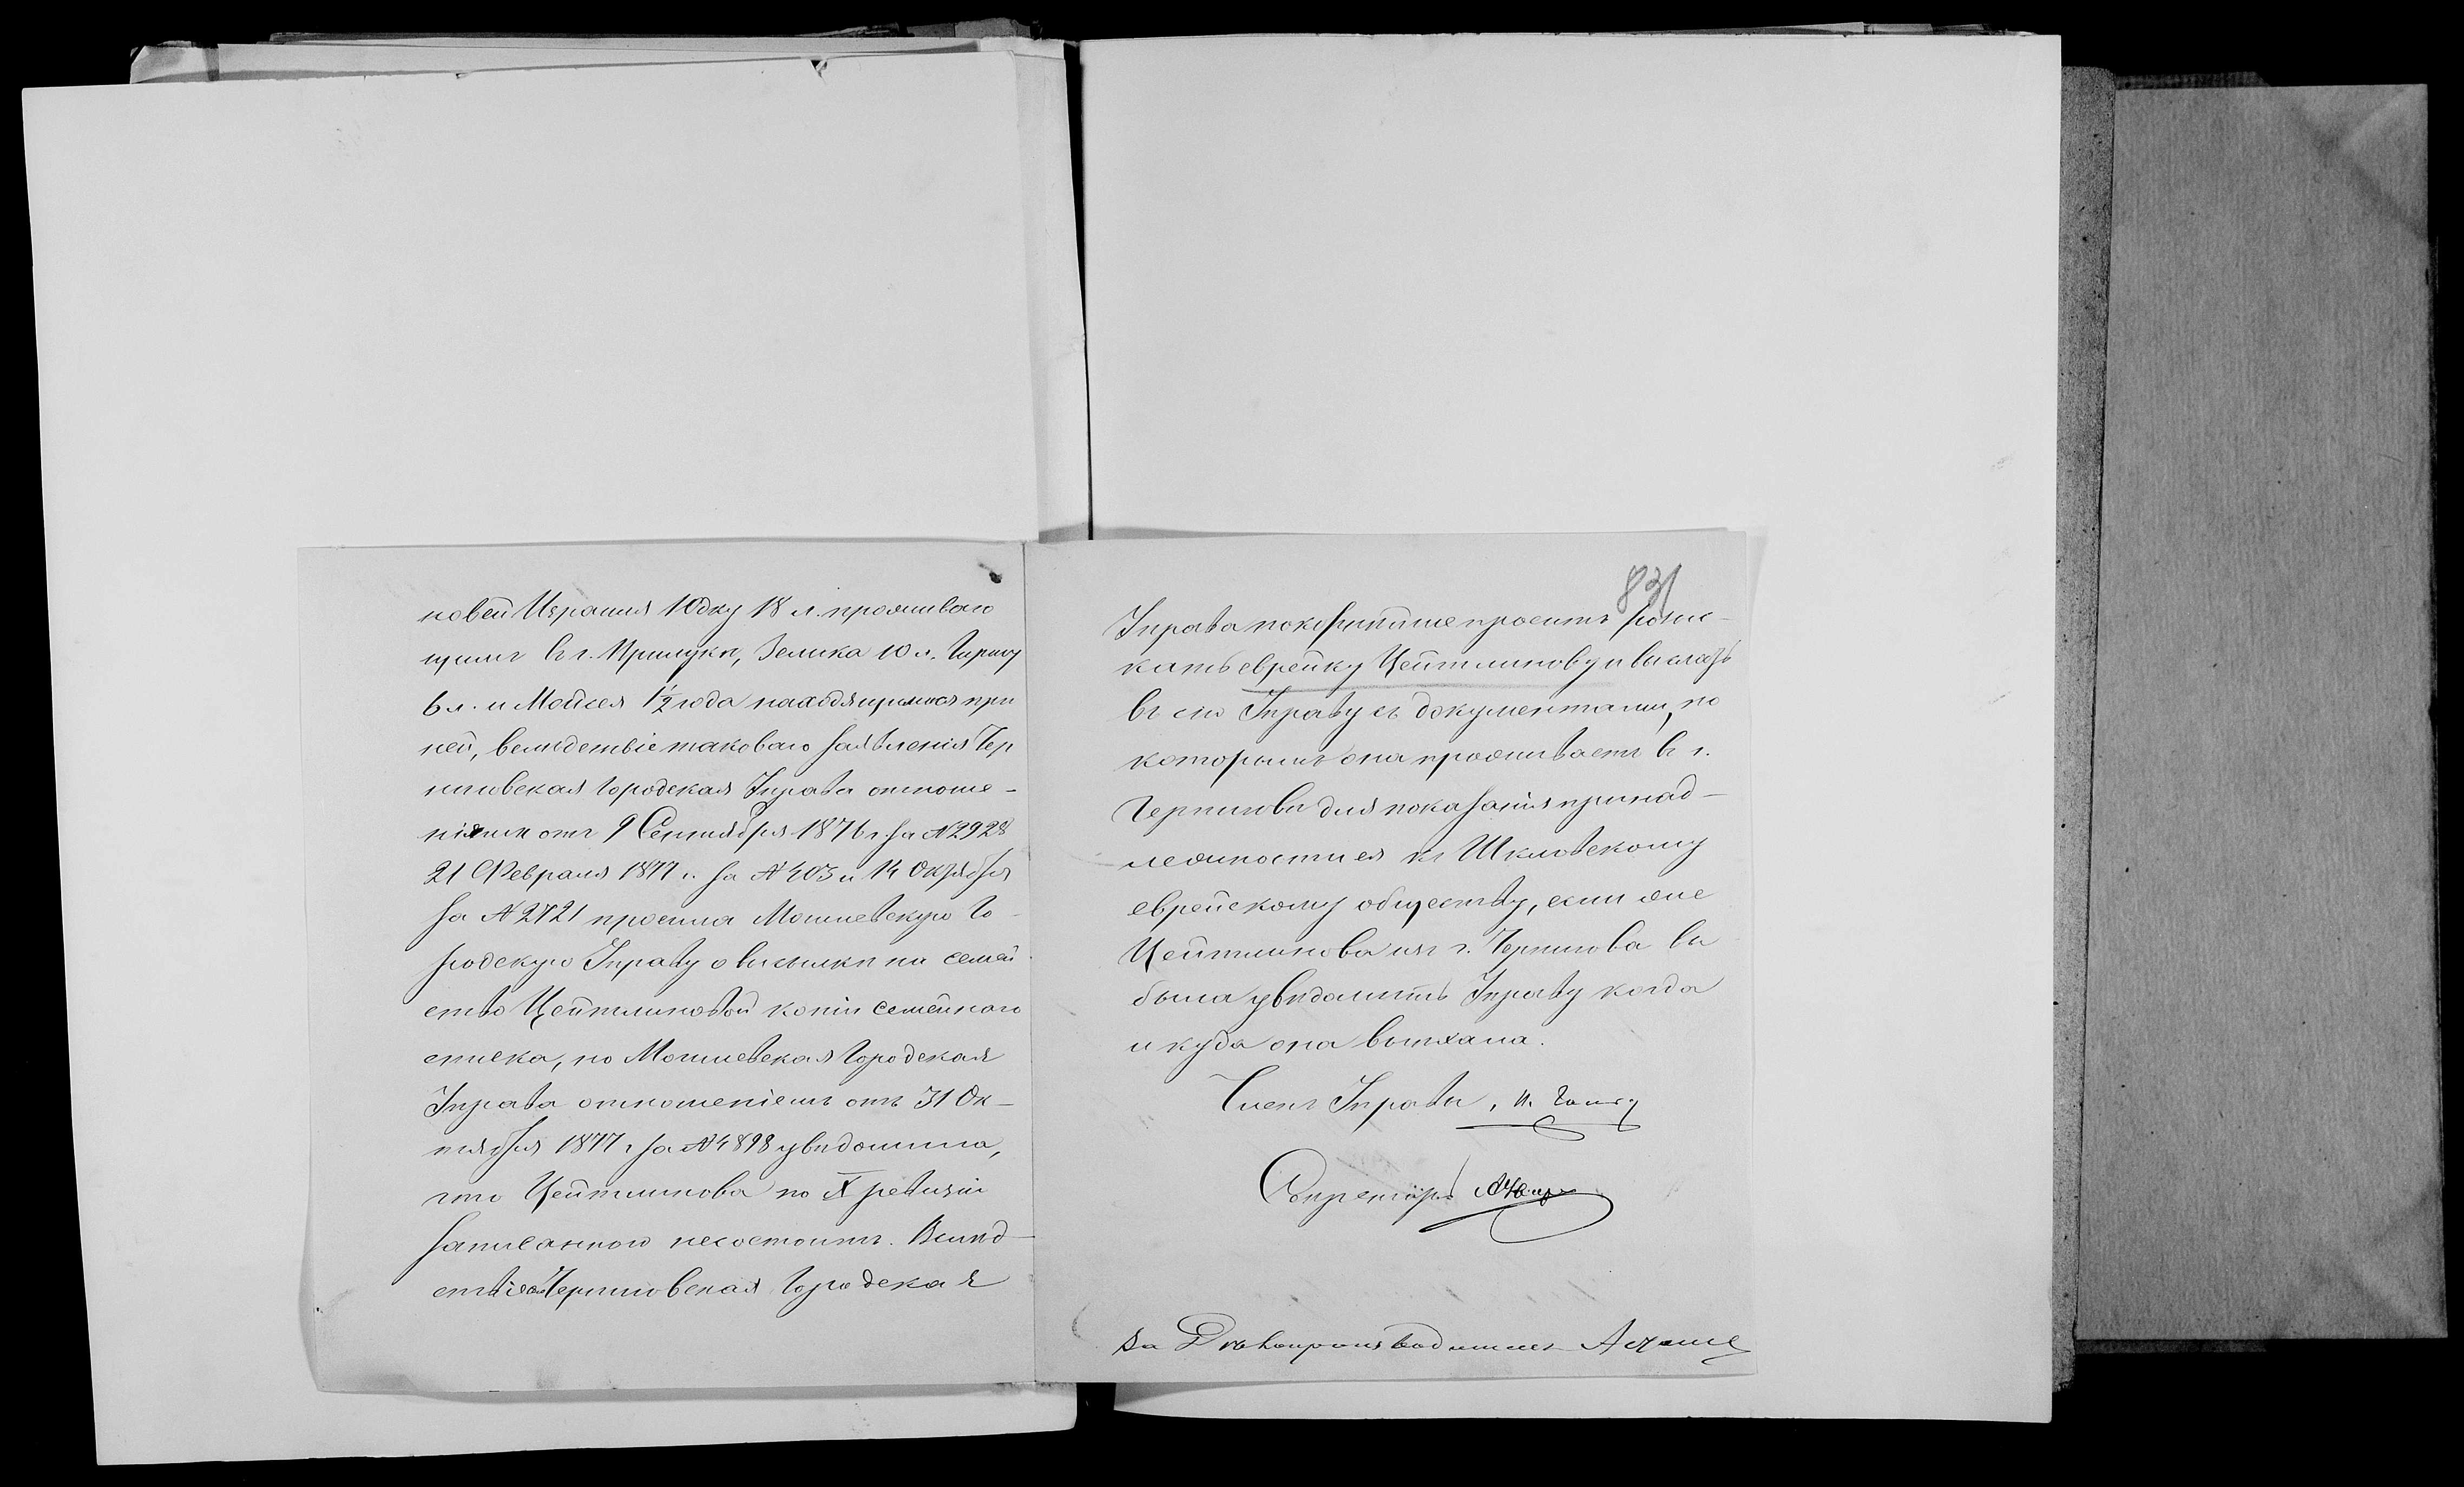 новей Израиля Юдку 18 л. проживаю
щими въ г. Прилуки, Зелика 10 л. Гиршу
6 л. и Мойсея 1½ года находящимися при
ней, вслѣдствіе таковаго заявленія Чер
ниговская Городская Управа отноше-
ніями отъ 9 Сентября 1876 г. за № 2928
21 Февраля 1877 г. за № 403 и 14 Октября
за № 2721 просила Могилевскую Го-
родскую Управу о высылкѣ на семей
ство Цейтлиновой копіи семейнаго
списка, но Могилевская Городская
Управа отношеніемъ отъ 31 Ок-
тября 1877 г. за № 4898 увѣдомила,
что Цейтлинова по X ревизіи
записанною несостоитъ. Вслѣд-
ствіе Черниговская Городская
831
Управа покорнѣйше проситъ розыс-
кать еврейку Цейтлинову и выслать
въ сію Управу съ документами, по
которымъ она проживаетъ въ г.
Черниговѣ для показанія принад-
лежности ея къ Шкловскому
еврейскому обществу, если же
Цейтлинова изъ г. Чернигова вы
была увѣдомить Управу когда
и куда она выѣхала.
Членъ Управы, И.
Секретарь
За Дѣлопроизводителя